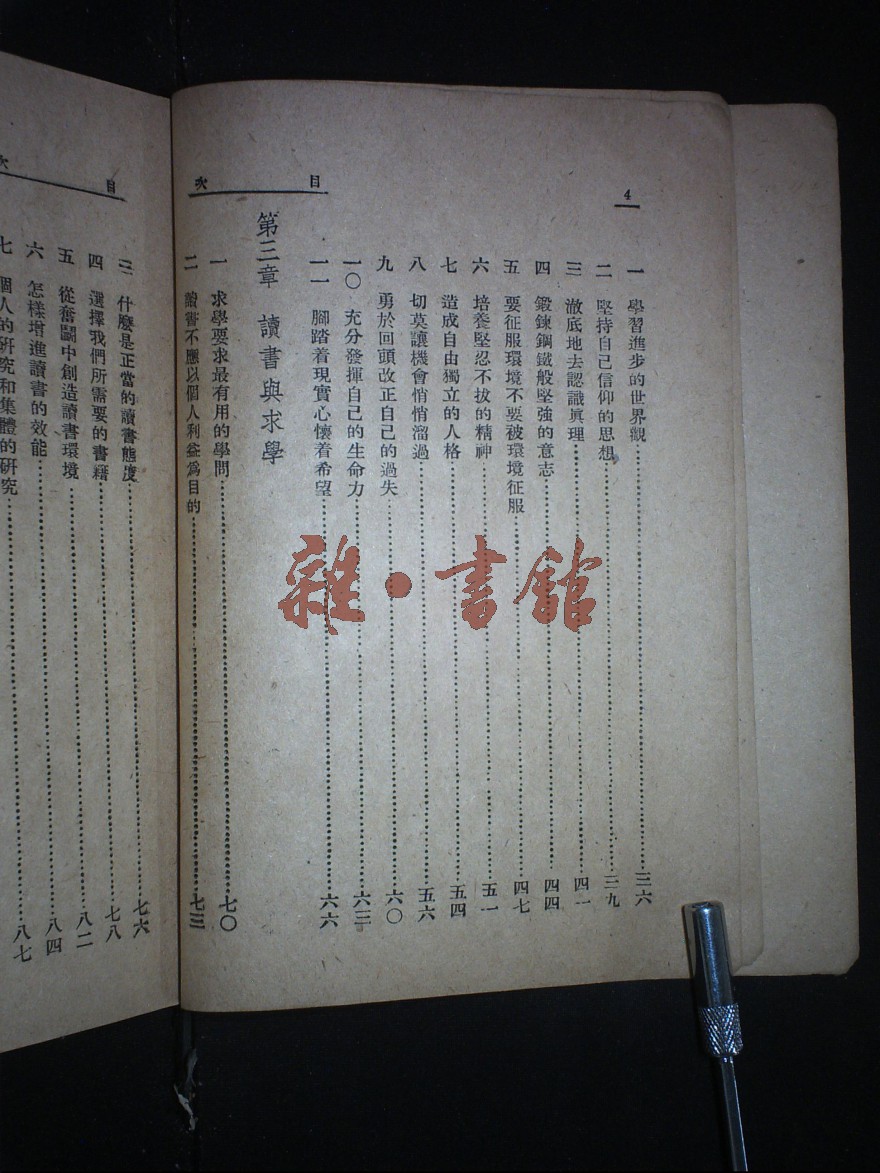 4
目次
一 學習進步的世界觀……三六
二 堅持自己信仰的思想……三九
三 澈底地去認識眞理……四一
四 鍛鍊鋼鐵般堅強的意志……四四
五 要征服環境不要被環境征服……四七
六 培養堅忍不拔的精神……五一
七 造成自由獨立的人格……五四
八 切莫讓機會悄悄溜過……五六
九 勇於回頭改正自己的過失……六〇
一〇 充分發揮自己的生命力……六三
一一 腳踏着現實心懷着希望……六六
第三章 讀書與求學
一 求學要求最有用的學問……七〇
二 讀書不應以個人利益爲目的……七三
目次
三 什麼是正當的讀書態度……七六
四 選擇我們所需要的書籍……七八
五 從奮鬭中創造讀書環境……八二
六 怎樣增進讀書的效能……八四
七 個人的硏究和集體的硏究……八七
雜·書館